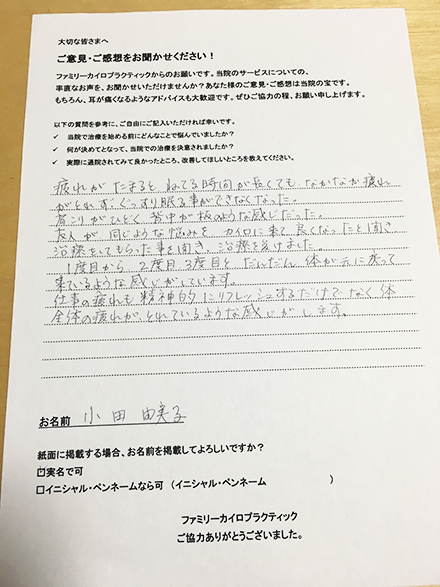 大切な皆さまへ
ご意見・ご感想をお聞かせください！
ファミリーカイロプラクティックからのお願いです。当院のサービスについての、
率直なお声を、お聞かせいただけませんか？あなた様のご意見・ご感想は当院の宝です。
もちろん、耳が痛くなるようなアドバイスも大歓迎です。ぜひご協力の程、お願い申し上げます。
以下の質問を参考に、ご自由にご記入いただければ幸いです。
✓ 当院で治療を始める前にどんなことで悩んでいましたか？
✓ 何が決めてとなって、当院での治療を決意されましたか？
✓ 実際に通院されてみて良かったところ、改善してほしいところを教えてください。
疲れがたまると、ねてる時間が長くても、なかなか疲れ
がとれず、ぐっすり眠る事ができなくなった。
肩こりがひどく、背中が板のような感じだった。
友人が、同じような悩みを、カイロに来て良くなったと聞き
治療をしてもらった事を聞き、治療を受けました。
1度目から、2度目、3度目と、だんだん体が元に戻って
来ているような感じがしています。
仕事の疲れも精神的にリフレッシュするだけでなく体
全体の疲れが、とれているような感じがします。
お名前 小田 由実子
紙面に掲載する場合、お名前を掲載してよろしいですか？
☑実名で可
□イニシャル・ペンネームなら可 （イニシャル・ペンネーム ）
ファミリーカイロプラクティック
ご協力ありがとうございました。